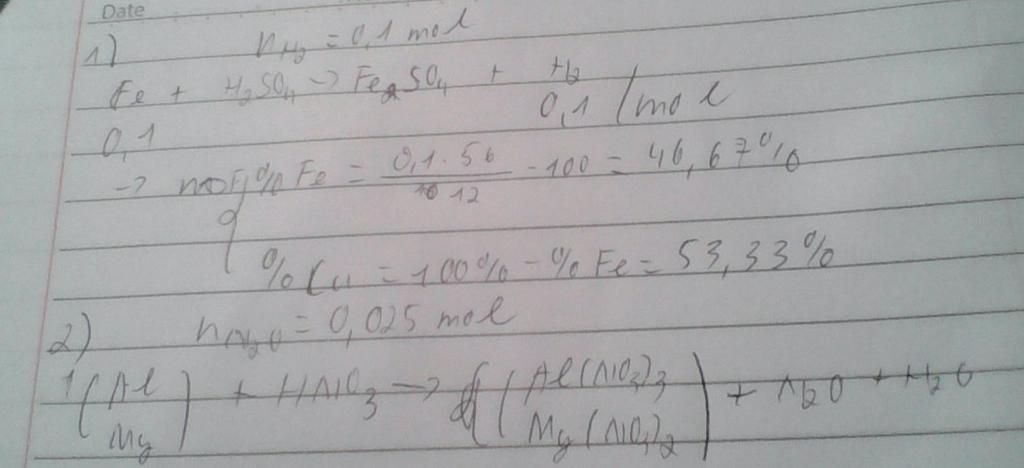 Date
1) nH2 = 0,1 mol
Fe + H2SO4 -> Fe2SO4 + H2
0,1 0,1 /mol
-> % Fe = 0,1.56 / 12 . 100 = 46,67%
% Cu = 100% - % Fe = 53,33%
2) nN2O = 0,025 mol
(Al Mg) + HNO3 -> (Al(NO3)3 Mg(NO3)2) + N2O + H2O